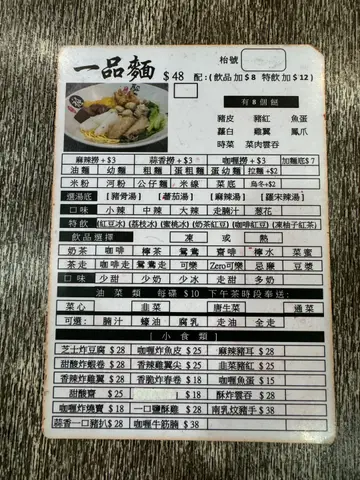 枱號
一品麵 $48 配:(飲品加$8 特飲加$12)
有8個餸
豬皮 豬紅 魚蛋
蘿白 雞翼 鳳爪
時菜 菜肉雲吞
麻辣撈+$3 蒜香撈+$3 咖喱撈+$3 加麵底$7
油麵 幼麵 粗麵 蛋粗麵 蛋幼麵 拉麵+$2
米粉 河粉 公仔麵 米線 菜底 烏冬+$2
選湯底 [豬骨湯] [蕃茄湯] [麻辣湯] [羅宋辣湯]
口味 小辣 中辣 大辣 走腩汁 葱花
特飲 (紅豆冰) (荔枝冰) (蜜桃冰) (奶茶紅豆) (咖啡紅豆) (凍柚子紅茶)
飲品選擇 凍 或 熱
奶茶 咖啡 檸茶 鴛鴦 齋啡 檸水 菜蜜
茶走 咖啡走 鴛鴦走 可樂 Zero可樂 忌廉 豆漿
口味 少甜 少奶 少冰 走甜 多奶
油菜類 每碟 $10 下午茶時段奉送:
菜心 韭菜 唐生菜 通菜
可選: 腩汁 蠔油 腐乳 走油 全走
[小食類]
芝士炸豆腐 $28 咖喱炸魚皮 $25 麻辣豬耳 $28
甜酸炸蝦卷 $28 香辣雞翼尖 $25 韭菜豬紅 $25
香辣炸雞翼 $28 香脆炸春卷 $18 咖喱魚蛋 $15
甜酸齋 $25 $18 酥炸雲吞 $28
咖喱炸燒賣 $18 一口鹽酥雞 $28 南乳炆豬手 $38
蒜香一口豬扒 $28 咖喱牛筋腩 $38